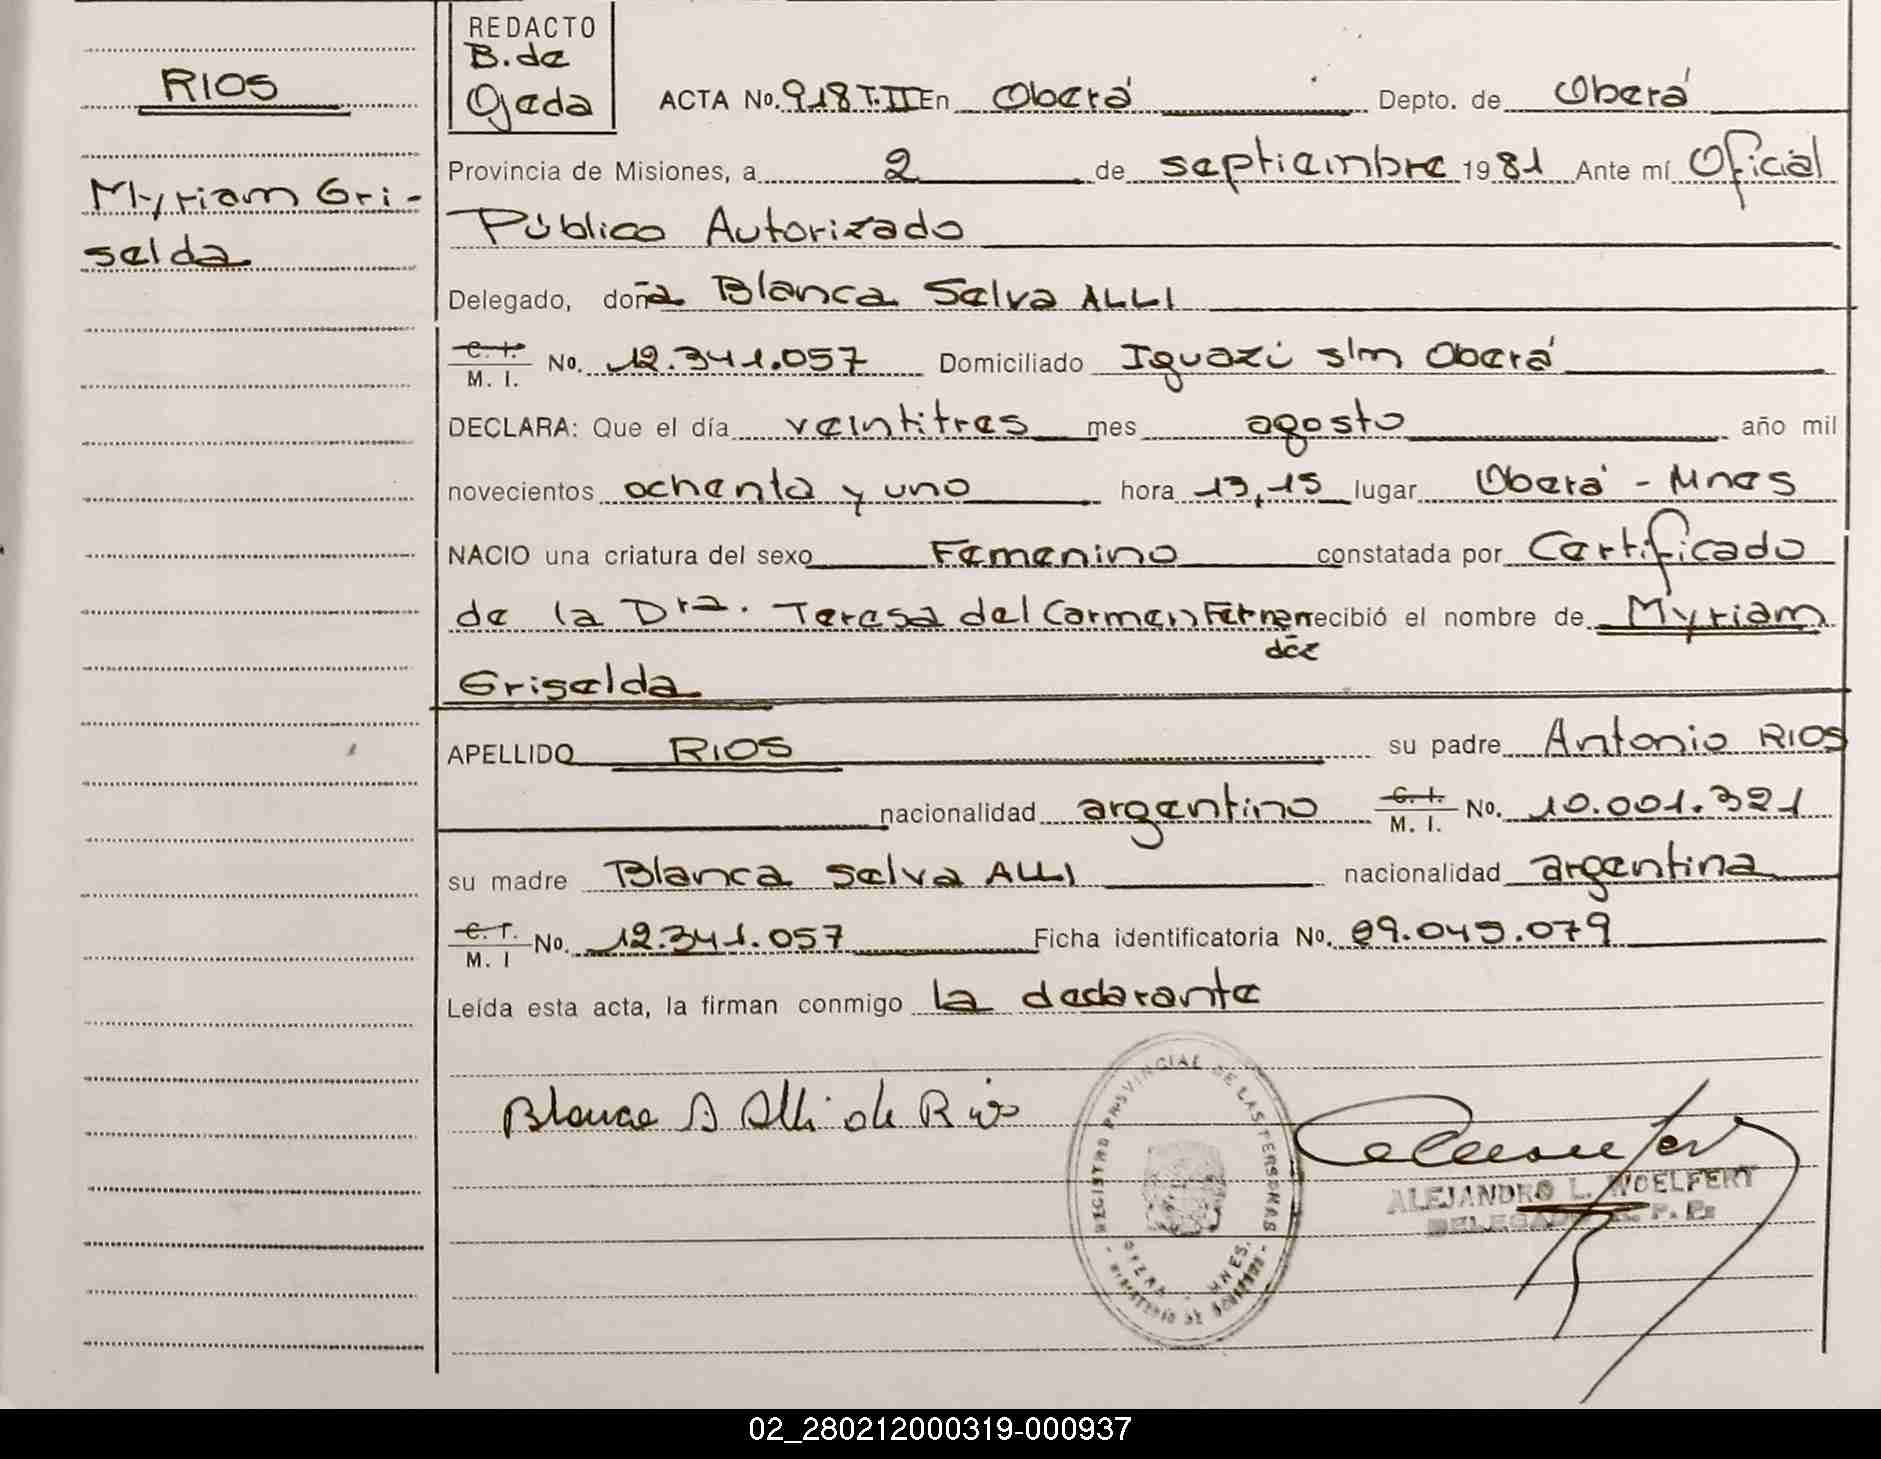 RIOS
Myriam Gri-
selda
REDACTO
B. de
Ojeda
ACTA No. 918 T. II En Oberá Depto. de Oberá
Provincia de Misiones, a 2 de septiembre 1981 Ante mí Oficial
Público Autorizado
Delegado, doña Blanca Selva ALLI
C. I.
M. I. No. 12.341.057 Domiciliado Iguazú s/m Oberá
DECLARA: Que el día veintitres mes agosto año mil
novecientos ochenta y uno hora 13,15 lugar Oberá - Mnes
NACIO una criatura del sexo Femenino constatada por Certificado
de la Dra. Teresa del Carmen Fernan recibió el nombre de Myriam
déz
Griselda
APELLIDO RIOS su padre Antonio RIOS
nacionalidad argentino C. I.
M. I. No. 10.001.321
su madre Blanca Selva ALLI nacionalidad argentina
C. I.
M. I No. 12.341.057 Ficha identificatoria No. 29.045.079
Leída esta acta, la firman conmigo la declarante
Blanca S Alli de Rios
REGISTRO PROVINCIAL DE LAS PERSONAS
MNES.
ALEJANDRO L. WOELFERT
DELEGADO R. P. P.
02_280212000319-000937